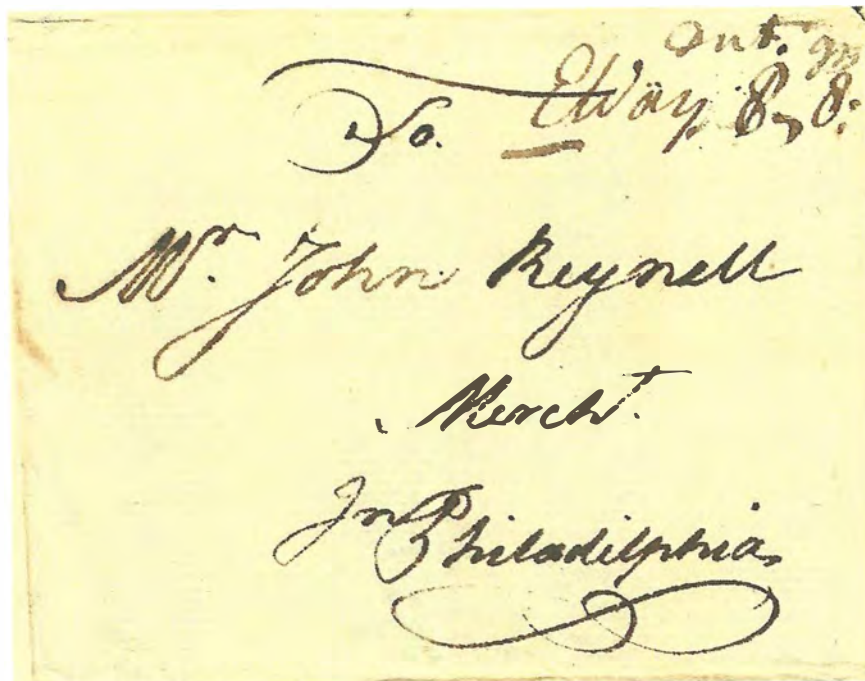 To.
Way 8, 8:
Mr. John Reynell
Mercht.
In Philadilphia